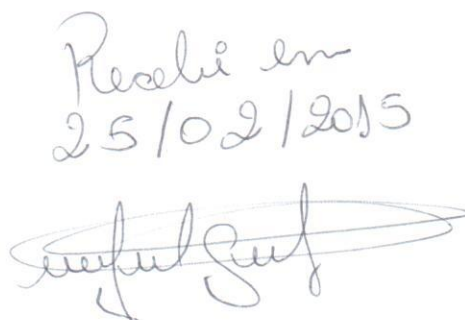 Recebi em
25/02/2015